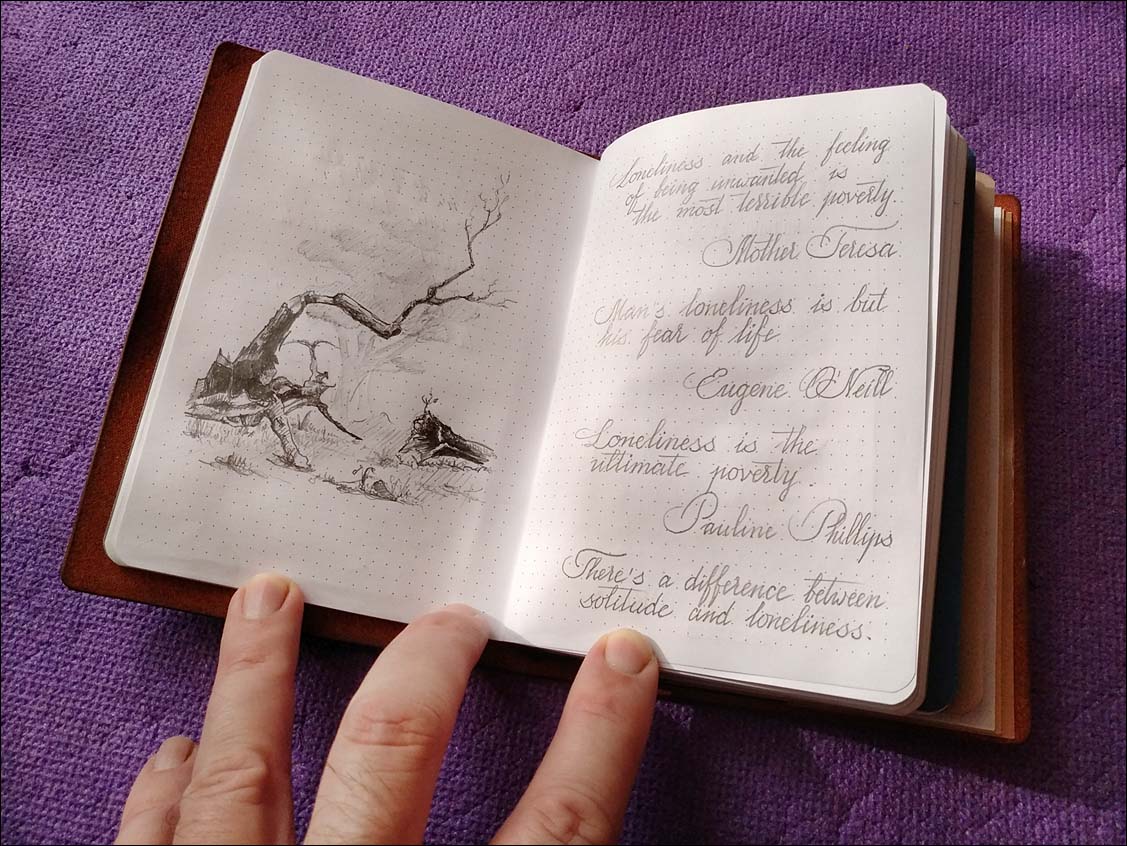 Loneliness and the feeling
of being unwanted is
the most terrible poverty.
Mother Teresa
Man's loneliness is but
his fear of life
Eugene O'Neill
Loneliness is the
ultimate poverty.
Pauline Phillips
There's a difference between
solitude and loneliness.